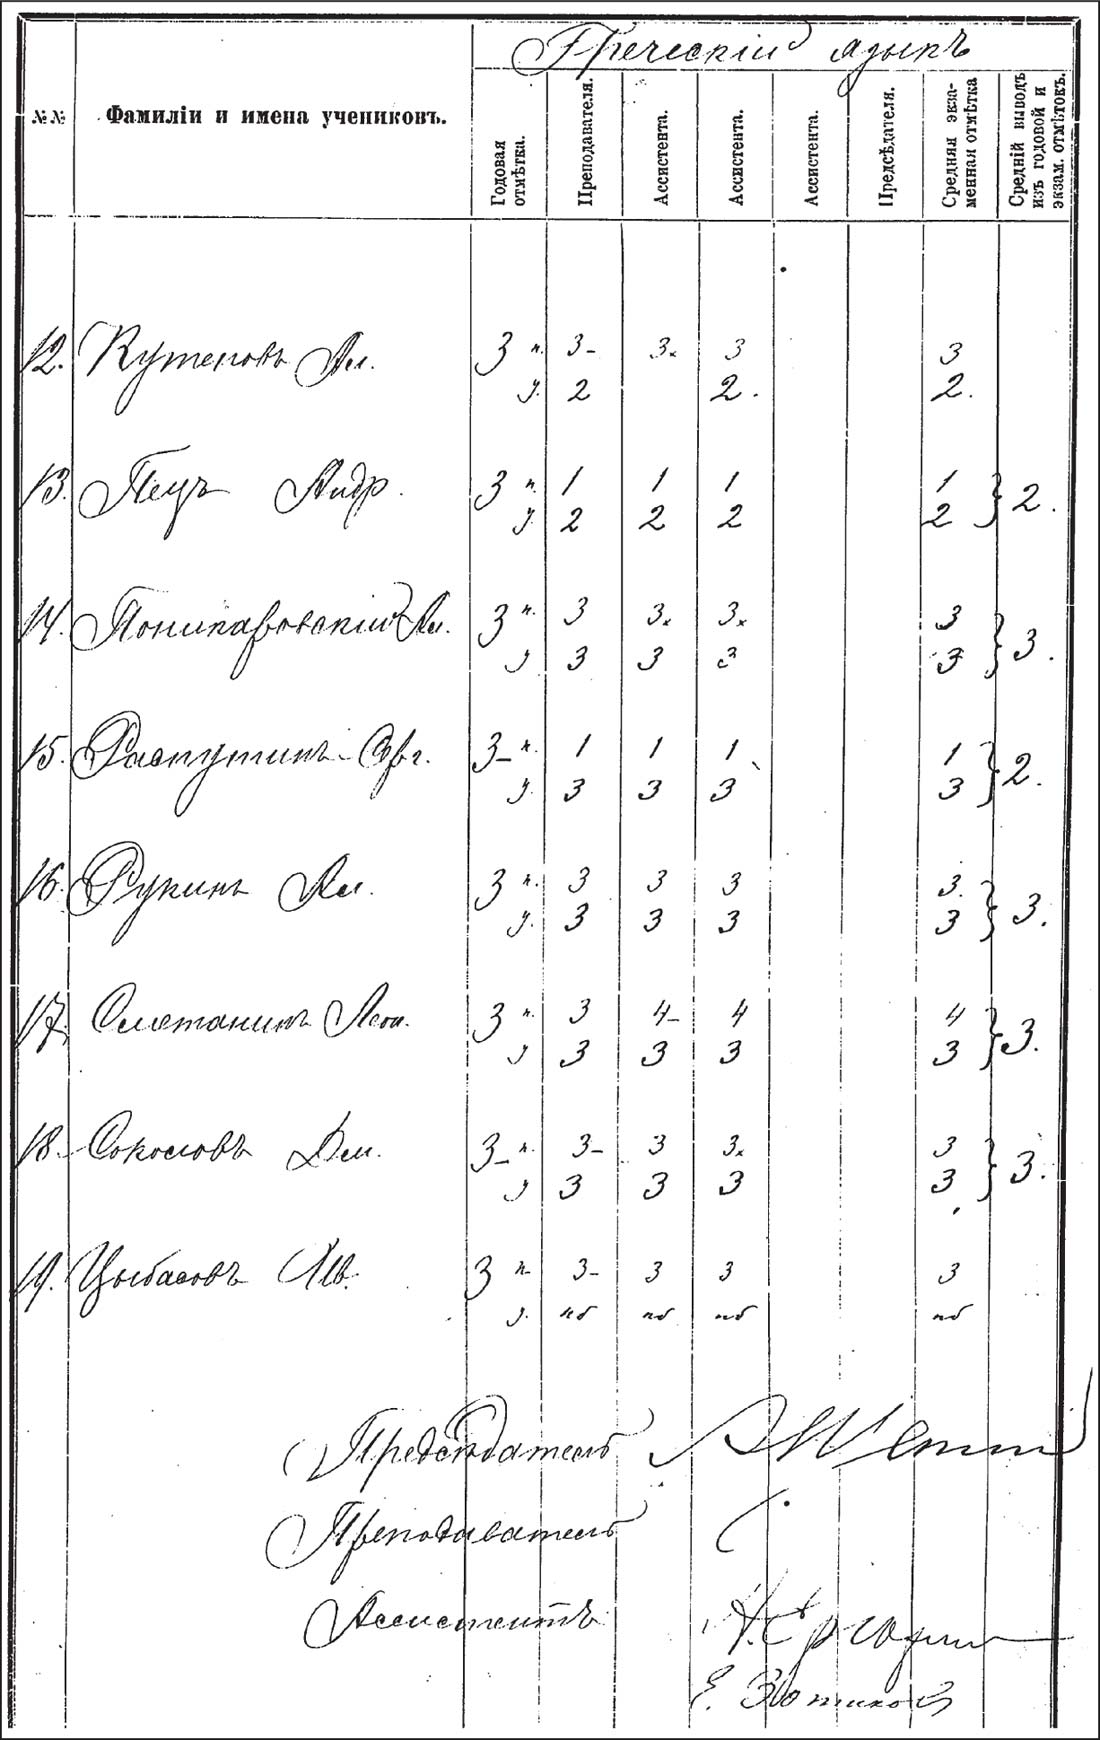 Греческій языкъ
№№ Фамиліи и имена учениковъ. Годовая отмѣтка. Преподавателя. Ассистента. Ассистента. Ассистента. Предсѣдателя. Средняя экзаменная отмѣтка Средній выводъ изъ годовой и экзам. отмѣтокъ.
12. Кутеповъ Ал. 3 п. 3- 3× 3 3
у. 2 2. 2.
13. Пецъ Андр. 3 п. 1 1 1 1 } 2.
у. 2 2 2 2
14. Поникаровскій Ал. 3 п. 3 3× 3× 3 } 3.
у 3 3 3 3
15. Распутинъ Серг. 3- п. 1 1 1 1 } 2.
у. 3 3 3 3
16. Рукинъ Ал. 3 п. 3 3 3 3. } 3.
у. 3 3 3 3
17. Сметанинъ Леон. 3 п. 3 4- 4 4 } 3.
у 3 3 3 3
18. Соколовъ Дм. 3- п. 3- 3 3× 3 } 3.
у 3 3 3 3
19. Цыбасовъ Ив. 3 п. 3- 3 3 3
у. нб нб нб нб
Предсѣдатель
Преподаватель
Ассистентъ
Е. Зотиков